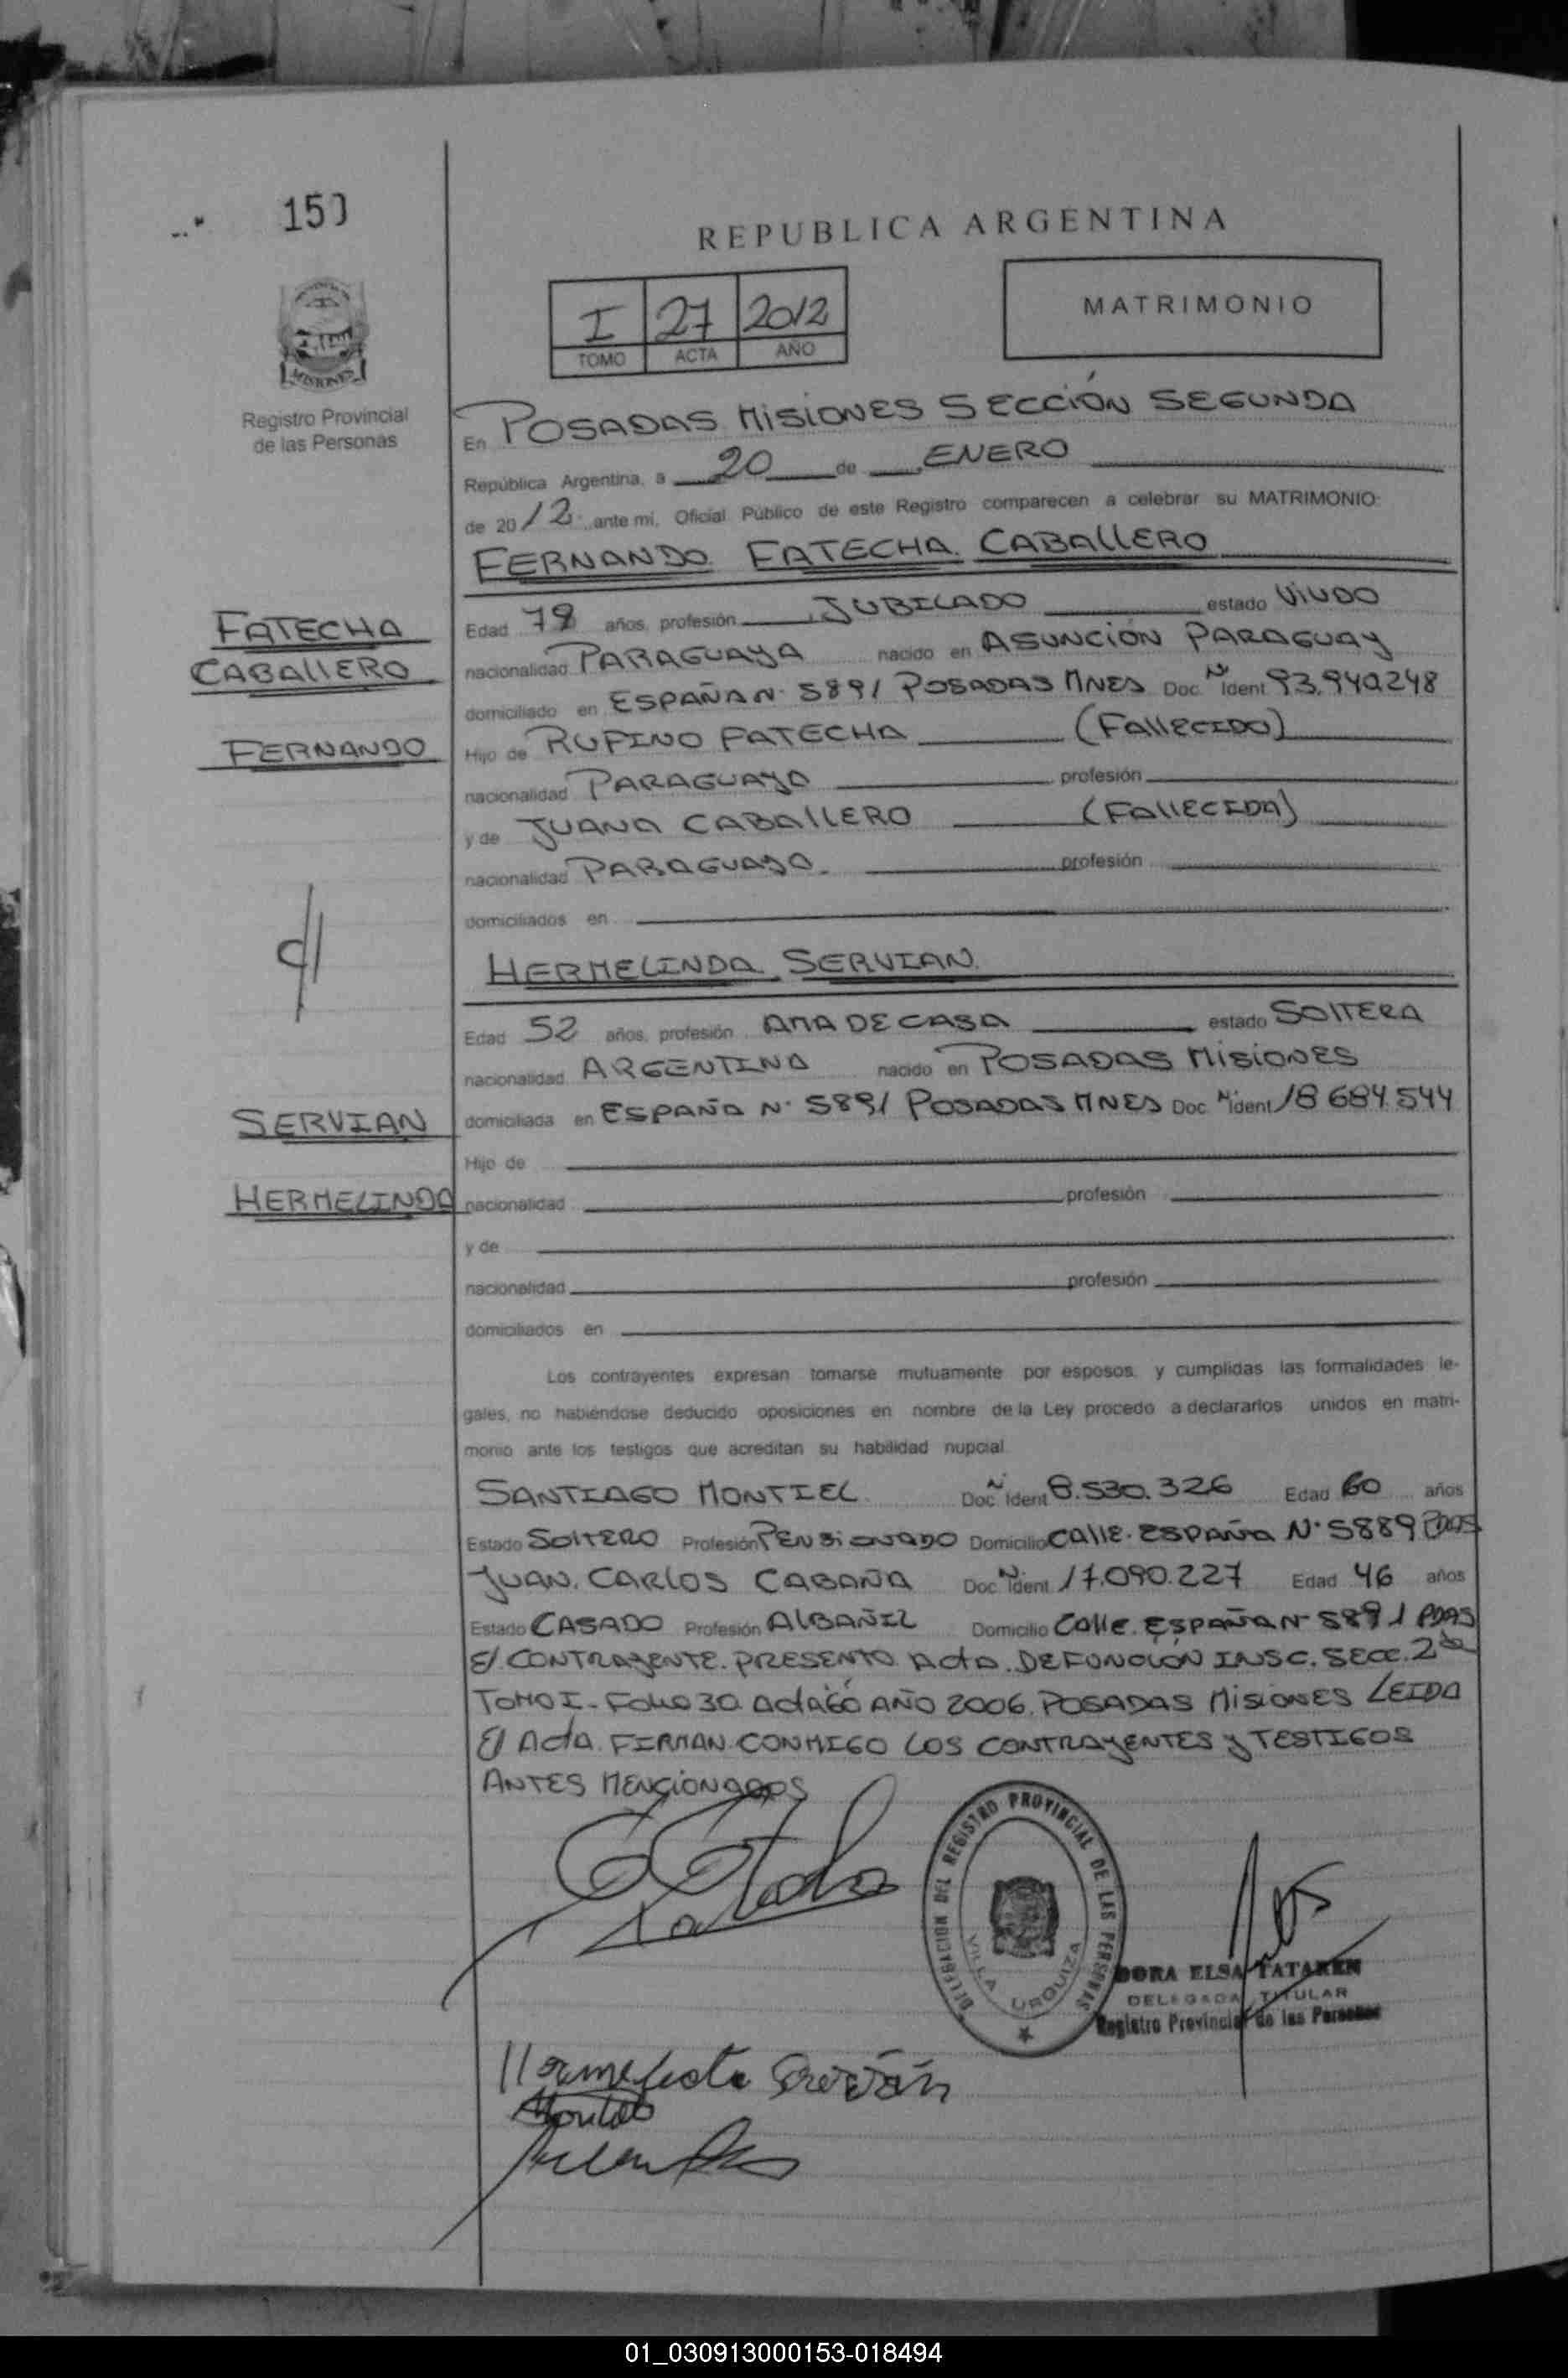 15)
REPUBLICA ARGENTINA
I 27 2012
TOMO ACTA AÑO
MATRIMONIO
MISIONES
Registro Provincial
de las Personas
En POSADAS MISIONES SECCIÓN SEGUNDA
República Argentina, a 20 de ENERO
de 2012 ante mi, Oficial Público de este Registro comparecen a celebrar su MATRIMONIO:
FERNANDO FATECHA CABALLERO
FATECHA
CABALLERO
FERNANDO
Edad años, profesión JUBILADO estado VIUDO
nacionalidad PARAGUAYA nacido en ASUNCIÓN PARAGUAY
domiciliado en ESPAÑA N· 5891 POSADAS MNES Doc. N Ident 93.940.248
Hijo de RUFINO FATECHA (FALLECIDO)
nacionalidad PARAGUAYO profesión
y de JUANA CABALLERO (FALLECIDA)
nacionalidad PARAGUAYO. profesión
domiciliados en
C/
HERMELINDA SERVIAN
SERVIAN
HERMELINDA
Edad 52 años, profesión AMA DE CASA estado SOLTERA
nacionalidad ARGENTINA nacido en POSADAS MISIONES
domiciliada en ESPAÑA N· 5891 POSADAS MNES Doc N· Ident 18 684.544
Hijo de
nacionalidad profesión
y de
nacionalidad profesión
domiciliados en
Los contrayentes expresan tomarse mutuamente por esposos, y cumplidas las formalidades le-
gales, no habiéndose deducido oposiciones en nombre de la Ley procedo a declararlos unidos en matri-
monio ante los testigos que acreditan su habilidad nupcial
SANTIAGO MONTIEL Doc. N Ident 8.530.326 Edad 60 años
Estado SOLTERO Profesión PENSIONADO Domicilio CALLE. ESPAÑA N· 5889 PDAS
JUAN. CARLOS CABAÑA Doc. N Ident 17.090.227 Edad 46 años
Estado CASADO Profesión ALBAÑIL Domicilio CALLE. ESPAÑA N· 5891 PDAS
El CONTRAYENTE. PRESENTO ACTA. DEFUNCION INSC. SECC. 2da
TOMO I - FOLIO 30 ACTA 60 AÑO 2006. POSADAS MISIONES LEIDA
El ACTA. FIRMAN CONMIGO LOS CONTRAYENTES y TESTIGOS
ANTES MENCIONADOS
DELEGACION DEL REGISTRO PROVINCIAL DE LAS PERSONAS
VILLA URQUIZA
DORA ELSA TATAREN
DELEGADA TITULAR
Registro Provincial de las Personas
01_030913000153-018494